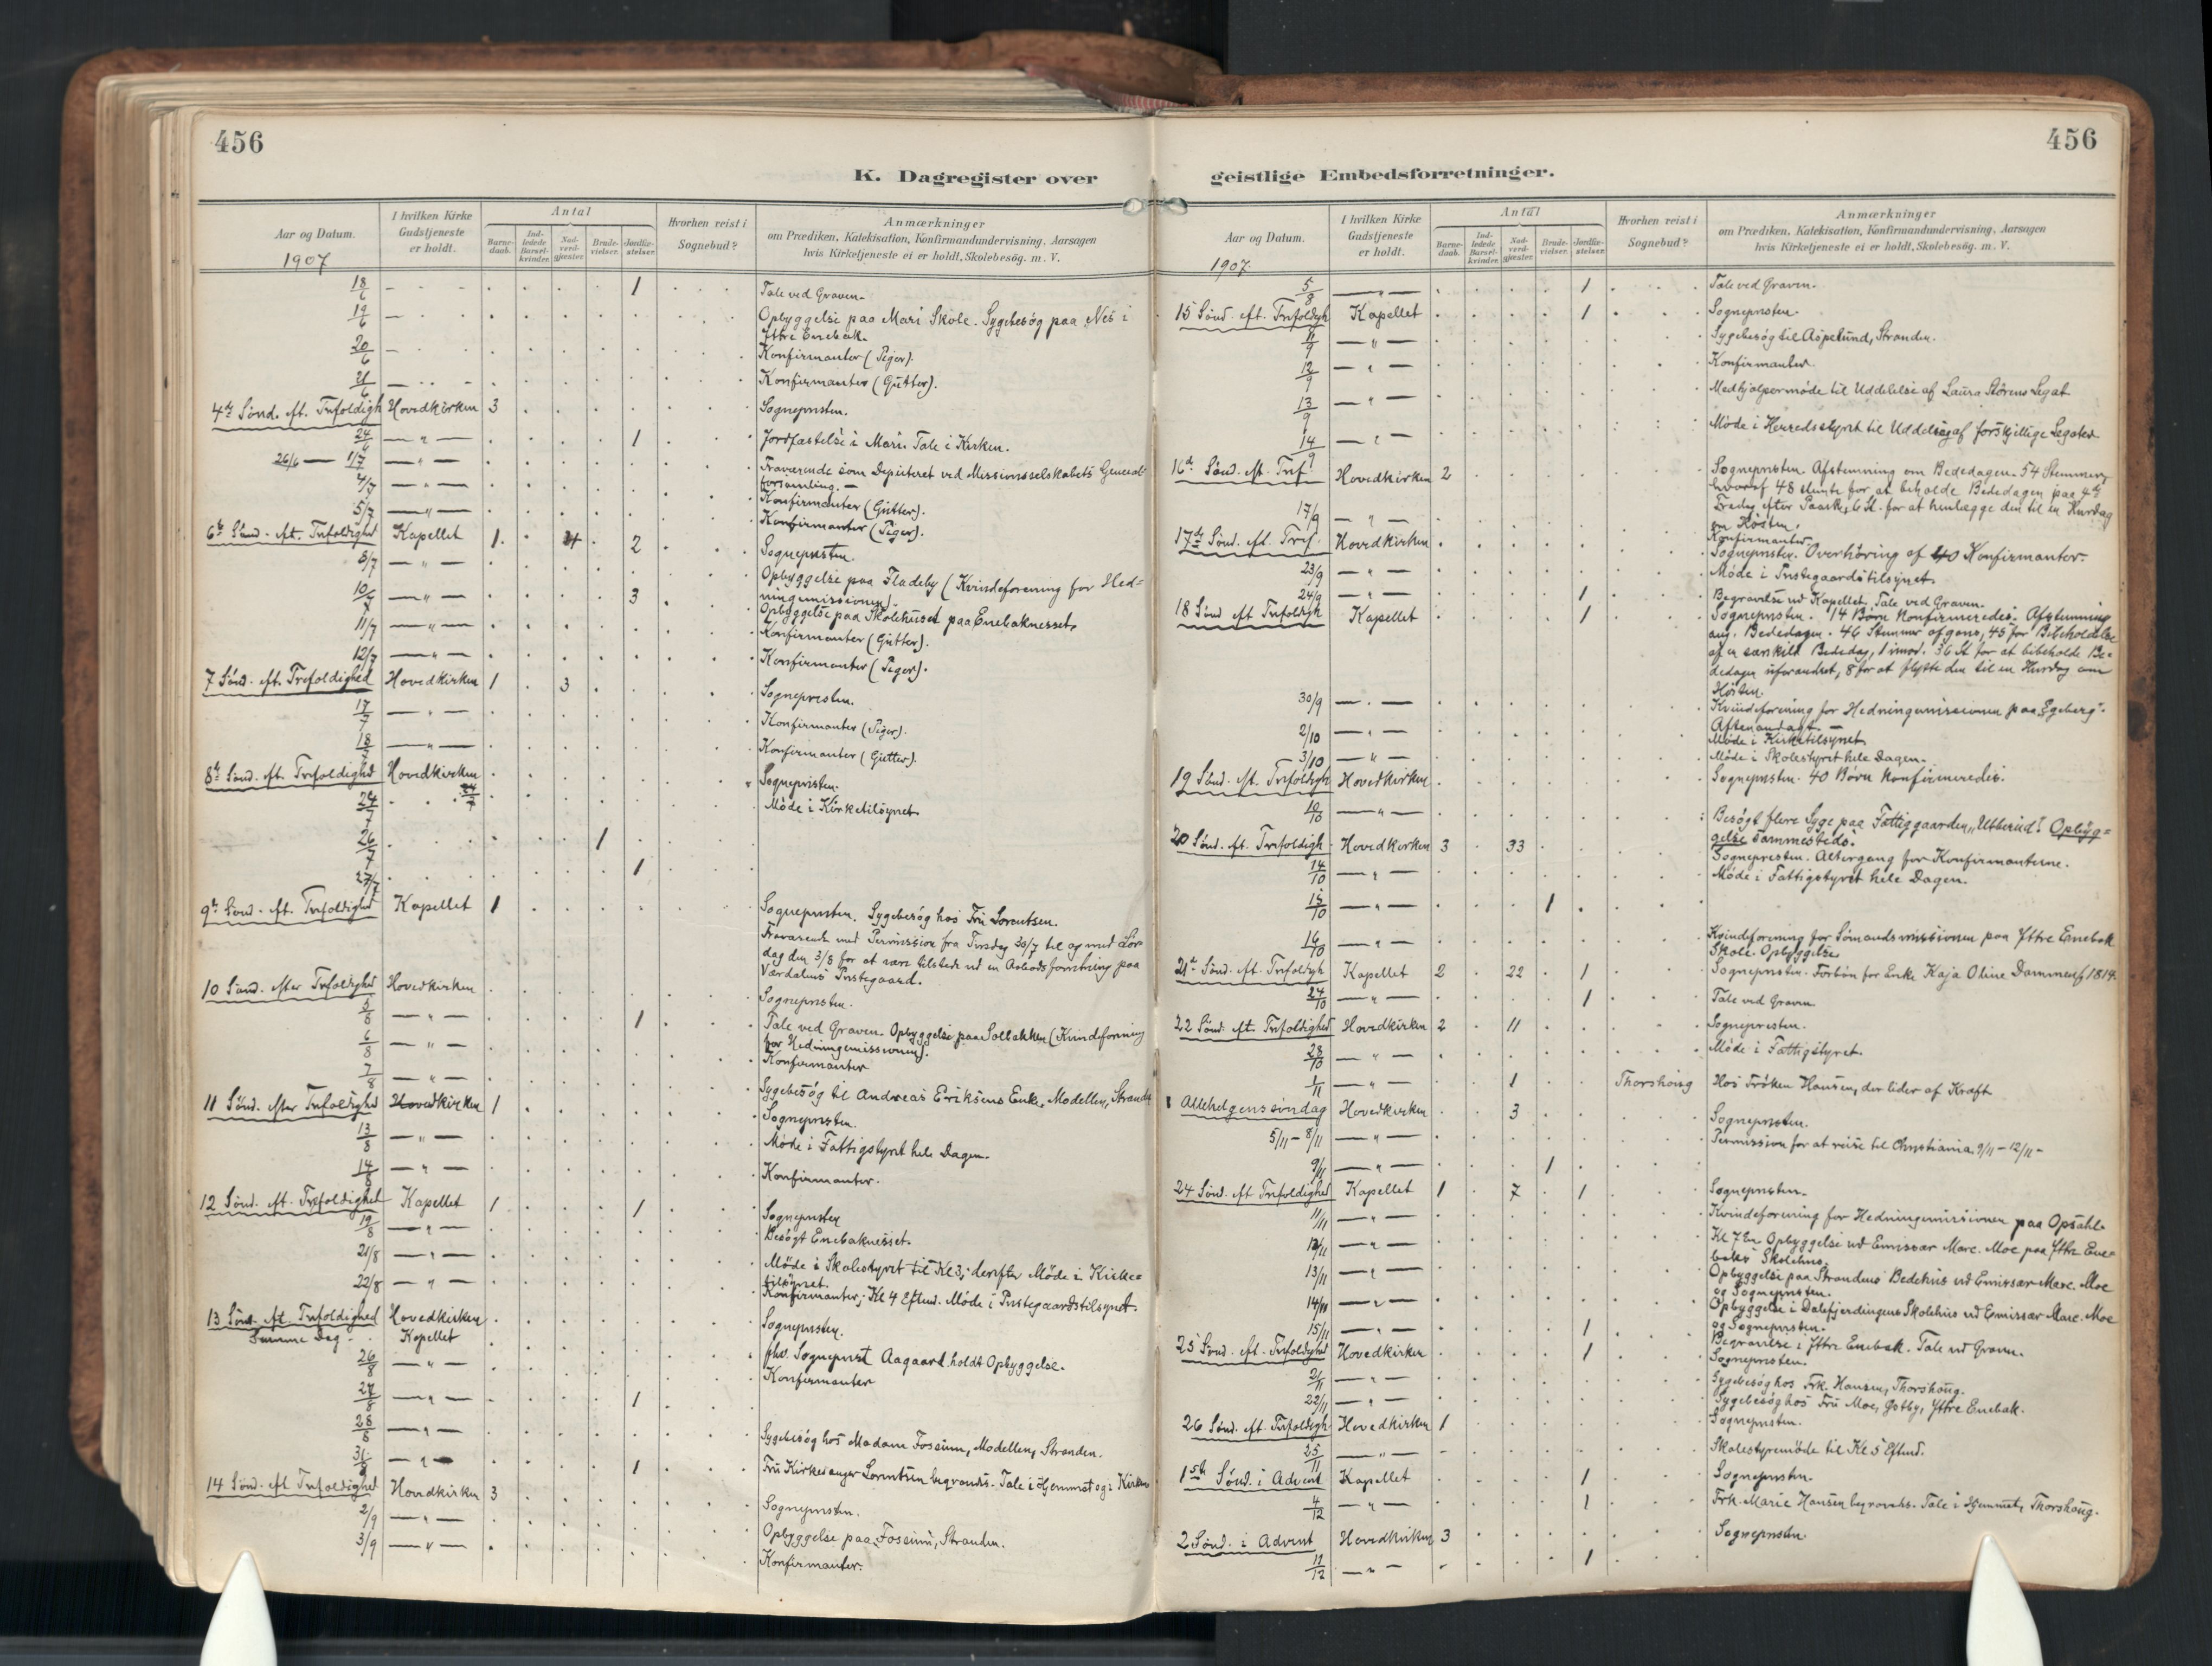 456
K. Dagregister over
Aar og Datum.
1907
I hvilken Kirke Gudstjeneste er holdt.
Antal
Barne-daab.
Ind-ledede Barsel-kvinder.
Nad-verd-gjæster.
Brude-vielser.
Jordfæ-stelser.
Hvorhen reist i Sognebud?
Anmærkninger
om Prædiken, Katekisation, Konfirmandundervisning, Aarsagen
hvis Kirketjeneste ei er holdt, Skolebesög. m. V.
18/6 1 Tale ved Graven.
19/6 Opbyggelse paa Mari Skole. Sygebesøg paa Nes i
Yttre Enebak.
20/6 Konfirmanter (Piger).
21/6 Konfirmanter (Gutter).
4de Sönd. eft. Trefoldigh Hovedkirken 3 Sognepresten.
24/6 — " — 1 Jordfæstelse i Mari. Tale i Kirken.
26/6 — 1/7 — " — Fraværende som Deputeret ved Missionsselskabets General-
forsamling. —
4/7 — " — Konfirmanter (Gutter).
5/7 — " — Konfirmanter (Piger).
6te Sönd. eft. Trefoldighed Kapellet 1 4 2 Sognepresten.
8/7 — " — Opbyggelse paa Fladeby (Kvindeforening for Hed=
ningemissionen).
10/7 — " — 3 Opbyggelse paa Skolehuset paa Enebaknesset.
11/7 — " — Konfirmanter (Gutter).
12/7 — " — Konfirmanter (Piger).
7 Sönd. eft. Trefoldighed Hovedkirken 1 3 Sognepresten.
17/7 — " — Konfirmanter (Piger).
18/7 — " — Konfirmanter (Gutter).
8de Sönd. eft. Trefoldighed Hovedkirken Sognepresten.
24/7 24/7 Møde i Kirketilsynet.
26/7 1
27/7 1
9de Sönd. eft. Trefoldighed Kapellet 1 Sognepresten. Sygebesøg hos Fru Lorentsen.
Fraværende med Permission fra Tirsdag 30/7 til og med Lör-
dag den 3/8 for at være tilstede ved en Aabodsforretning paa
Værdalens Prestegaard.
10 Sönd. efter Trefoldighed Hovedkirken Sognepresten.
5/8 — " — 1 Tale ved Graven. Opbyggelse paa Solbakken (Kvindeforening
for Hedningemissionen).
6/8 — " — Konfirmanter
7/8 — " — Sygebesøg til Andreas Eriksens Enke, Modellen, Stranden
11 Sönd. efter Trefoldighed Hovedkirken 1 Sognepresten.
13/8 — " — Møde i Fattigstyret hele Dagen.
14/8 — " — Konfirmanter.
12 Sönd. eft. Trefoldighed Kapellet 1 1 Sognepresten
19/8 — " — Besøgt Enebaknesset.
21/8 — " — Møde i Skolestyret til Kl 3; derefter Møde i Kirke=
tilsynet.
22/8 — " — Konfirmanter; Kl 4 Eftmd. Møde i Prestegaardstilsynet.
13 Sönd. eft. Trefoldighed Hovedkirken Sognepresten.
Samme Dag. Kapellet fhv. Sogneprest Aagaard holdt Opbyggelse.
26/8 — " — Konfirmanter
27/8 — " — 1
28/8 — " — Sygebesøg hos Madam Fossum, Modellen, Stranden.
31/8 — " — 1 Fru Kirkesanger Lorentsen begravedes. Tale i Hjemmet og i Kirken
14 Sönd. eft. Trefoldighed Hovedkirken 3 Sognepresten.
2/9 — " — Opbyggelse paa Fossum, Stranden.
3/9 — " — Konfirmanter.
456
geistlige Embedsforretninger.
Aar og Datum.
1907.
I hvilken Kirke Gudstjeneste er holdt.
Antal
Barne-daab.
Ind-ledede Barsel-kvinder.
Nad-verd-gjæster.
Brude-vielser.
Jordfæ-stelser.
Hvorhen reist i Sognebud?
Anmærkninger
om Prædiken, Katekisation, Konfirmandundervisning, Aarsagen
hvis Kirketjeneste ei er holdt, Skolebesög. m. V.
5/8 — " — 1 Tale ved Graven.
15 Sönd. eft. Trefoldigh Kapellet 1 Sognepresten.
11/9 — " — Sygebesøg til Aspelund, Stranden.
12/9 — " — Konfirmanter
13/9 — " — Medhjælpermøde til Uddelelse af Laura Störens Legat
14/9 — " — Møde i Herredsstyret til Uddeling af forskjellige Legater
16de Sönd. eft. Tref. Hovedkirken 2 Sognepresten. Afstemning om Bededagen. 54 Stemmer,
hvoraf 48 stemte for at beholde Bededagen paa 4de
Fredag efter Paask, 6 St. for at henlægge den til en Hverdag
om Høsten.
17/9 — " — Konfirmanter
17de Sönd. eft. Tref. Hovedkirken Sognepresten. Overhøring af 40 Konfirmanter.
23/9 — " — Møde i Prestegaardstilsynet.
24/9 — " — 1 Begravelse ved Kapellet. Tale ved Graven.
18 Sönd eft Trefoldigh Kapellet 1 Sognepresten. 14 Børn Konfirmeredes. Afstemning
ang. Bededagen. 46 Stemmer afgaves, 45 for Bibeholdelse
af en særskilt Bededag, 1 imod. 36 St for at bibeholde Be=
dedagen uforandret, 8 for at flytte den til en Hverdag om
Høsten.
30/9 — " — Kvindeforening for Hedningemissionen paa "Egeberg".
Aftenandagt. —
2/10 — " — Møde i Kirketilsynet
3/10 — " — Møde i Skolestyret hele Dagen.
19 Sönd. eft. Trefoldigh Hovedkirken Sognepresten. 40 Børn Konfirmeredes.
10/10 — " — Besøgt flere Syge paa Fattiggaarden "Utberud". Opbyg=
gelse sammesteds.
20 Sönd. eft. Trefoldigh Hovedkirken 3 33 Sognepresten. Altergang for Konfirmanterne.
14/10 — " — Møde i Fattigstyret hele Dagen.
15/10 — " — 1
16/10 — " — Kvindeforening for Sømandsmissionen paa Yttre Enebak
Skole. Opbyggelse
21de Sönd. eft. Trefoldigh Kapellet 2 22 1 Sognepresten. Forbön for Enke Kaja Oline Dammen f 1819.
24/10 — " — 1 Tale ved Graven
22 Sönd. eft. Trefoldighed Hovedkirken 2 11 Sognepresten.
28/10 — " — Møde i Fattigstyret.
1/11 — " — 1 Thorshoug Hos Frøken Hansen, der lider af Kræft
Allehelgenssöndag Hovedkirken 3 Sognepresten.
5/11 – 8/11 — " — Permission for at reise til Christiania 9/11 – 12/11 –
9/11 — " — 1
24 Sönd. eft Trefoldighed Kapellet 1 7 1 Sognepresten.
11/11 — " — Kvindeforening for Hedningemissionen paa Opsahl.
12/11 — " — Kl 7 Em Opbyggelse ved Emissær Marc. Moe paa Yttre Ene-
baks Skolehus
13/11 — " — Opbyggelse paa Strandens Bedehus ved Emissær Marc. Moe
og Sognepresten.
14/11 — " — Opbyggelse i Dalefjerdingens Skolehus ved Emissær Marc. Moe
og Sognepresten.
15/11 — " — 1 Begravelse i Yttre Enebak. Tale ved Graven.
25 Sönd. eft. Trefoldighed Hovedkirken 1 Sognepresten.
21/11 — " — Sygebesøg hos Frk. Hansen, Thorshoug.
22/11 — " — Sygebesøg hos Fru Moe, Gotby, Yttre Enebak.
26 Sönd. eft. Trefoldigh Hovedkirken 1 Sognepresten.
25/11 — " — Skolestyremøde til Kl 5 Eftmd.
1ste Sönd. i Advent Kapellet 1 Sognepresten.
4/12 — " — 1 Frk. Marie Hansen begravedes. Tale i Hjemmet, Thorshoug.
2 Sönd. i Advent Hovedkirken 3 Sognepresten.
11/12 — " — 1